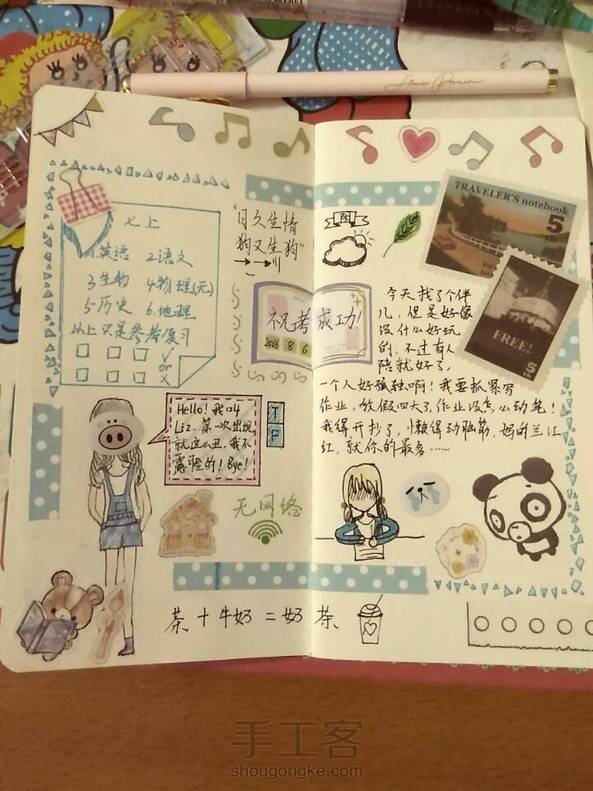 七上
1.英语 2.语文
3生物 4物理(无)
5历史 6.地理
以上只是参考复习
✓
or
×
"日久生情
狗又生狗"
祝考成功!
2016 8 6
Hello! 我叫
Liz. 第一次出现
就这么丑, 我不
露脸的! Bye!
T
F
无网络
茶+牛奶=奶茶
TRAVELER'S notebook
5
FREE!
5
今天找了个伴
儿, 但是好像
没什么好玩
的, 不过有人
陪就好了,
一个人好孤独啊! 我要抓紧写
作业, 放假四天了, 作业没怎么动笔!
我得开抄了, 懒得动脑筋, 妈的兰江
红, 就你的最多……
手工客
shougongke.com